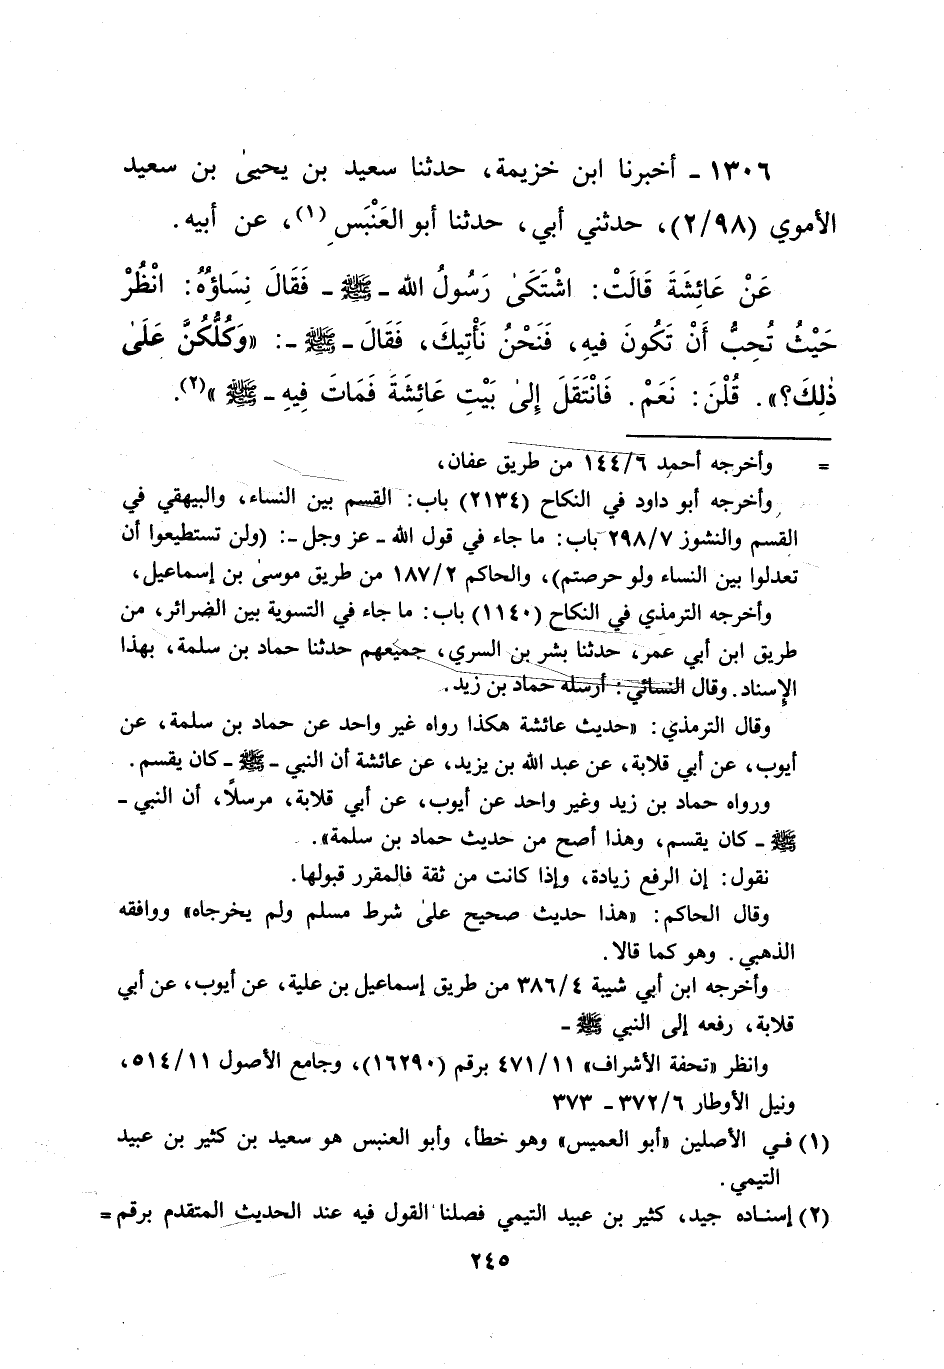 ١٣٠٦ ـ أخبرنا ابن خزيمة، حدثنا سعيد بن يحيىٰ بن سعيد
الأموي (٢/٩٨)، حدثني أبي، حدثنا أبو العَنْبَس (١)، عن أبيه.
عَنْ عَائِشَةَ قَالَتْ: اشْتَكَىٰ رَسُولُ الله ـ ﷺ ـ فَقَالَ نِسَاؤُهُ: انْظُرْ
حَيْثُ تُحِبُّ أَنْ تَكُونَ فِيهِ، فَنَحْنُ نَأْتِيكَ، فَقَالَ ـ ﷺ ـ: «وَكُلُّكُنَّ عَلَىٰ
ذٰلِكَ؟». قُلْنَ: نَعَمْ. فَانْتَقَلَ إِلىٰ بَيْتِ عَائِشَةَ فَمَاتَ فِيهِ ـ ﷺ »(٢).
= وأخرجه أحمد ١٤٤/٦ من طريق عفان،
وأخرجه أبو داود في النكاح (٢١٣٤) باب: القسم بين النساء، والبيهقي في
القسم والنشوز ٢٩٨/٧ باب: ما جاء في قول الله ـ عز وجل ـ: (ولن تستطيعوا أن
تعدلوا بين النساء ولو حرصتم)، والحاكم ١٨٧/٢ من طريق موسىٰ بن إسماعيل،
وأخرجه الترمذي في النكاح (١١٤٠) باب: ما جاء في التسوية بين الضرائر، من
طريق ابن أبي عمر، حدثنا بشر بن السري، جميعهم حدثنا حماد بن سلمة، بهذا
الإسناد. وقال النسائي: أرسله حماد بن زيد.
وقال الترمذي: «حديث عائشة هكذا رواه غير واحد عن حماد بن سلمة، عن
أيوب، عن أبي قلابة، عن عبد الله بن يزيد، عن عائشة أن النبي ـ ﷺ ـ كان يقسم.
ورواه حماد بن زيد وغير واحد عن أيوب، عن أبي قلابة، مرسلاً، أن النبي ـ
ﷺ ـ كان يقسم، وهذا أصح من حديث حماد بن سلمة».
نقول: إن الرفع زيادة، وإذا كانت من ثقة فالمقرر قبولها.
وقال الحاكم: «هذا حديث صحيح علىٰ شرط مسلم ولم يخرجاه» ووافقه
الذهبي. وهو كما قالا.
وأخرجه ابن أبي شيبة ٣٨٦/٤ من طريق إسماعيل بن علية، عن أيوب، عن أبي
قلابة، رفعه إلى النبي ﷺ ـ
وانظر «تحفة الأشراف» ٤٧١/١١ برقم (١٦٢٩٠)، وجامع الأصول ٥١٤/١١،
ونيل الأوطار ٣٧٢/٦ ـ ٣٧٣
(١) في الأصلين «أبو العميس» وهو خطأ، وأبو العنبس هو سعيد بن كثير بن عبيد
التيمي.
(٢) إسناده جيد، كثير بن عبيد التيمي فصلنا القول فيه عند الحديث المتقدم برقم =
٢٤٥